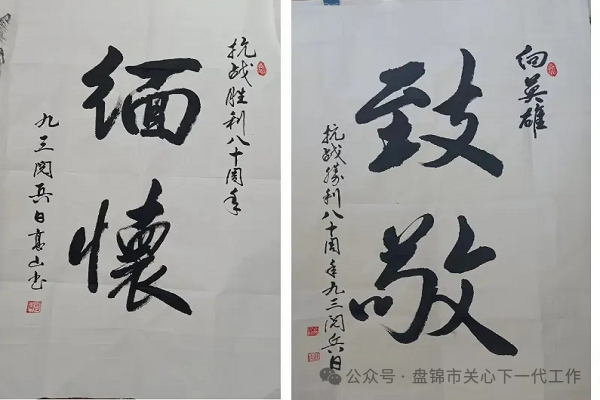 抗战胜利八十周年
缅怀
九三阅兵日高山书
向英雄
致敬
抗战胜利八十周年九三阅兵日
公众号·盘锦市关心下一代工作